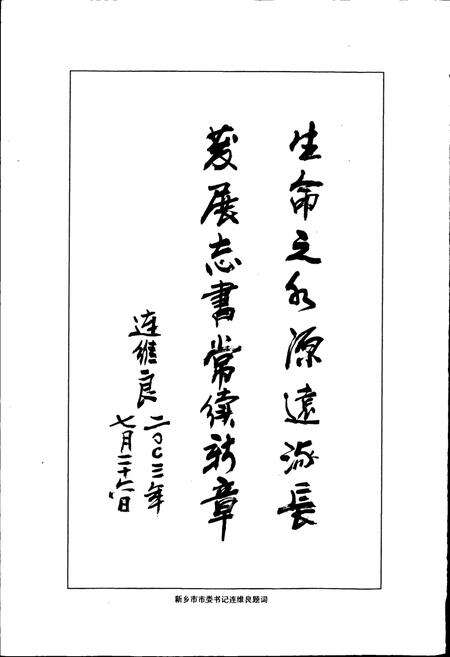 生命之水源遠流長
發展志書常續新章
连维良
二〇〇三年
七月二十六日
新乡市市委书记连维良题词